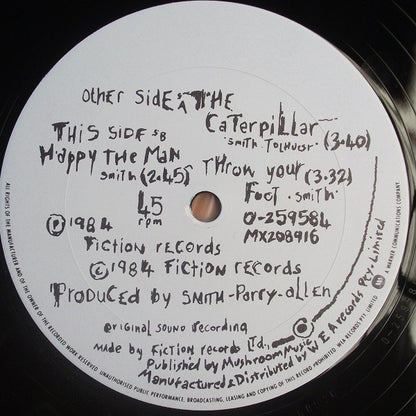 Other Side SA The
Caterpillar
Smith Tolhurst (3.40)
This Side SB
Happy The Man
Smith (2.45)
Throw your (3.32)
Foot . Smith.
45
rpm
0-259584
MX208916
Ⓟ 1984
Fiction Records
© 1984 Fiction Records
Produced by Smith-Parry-Allen
Original Sound Recording
made by Fiction Records Ltd., ©
Published by Mushroom Music
Manufactured & Distributed by W E A records Pty. Limited
ALL RIGHTS OF THE MANUFACTURER AND OF THE OWNER OF THE RECORDED WORK RESERVED. UNAUTHORISED PUBLIC PERFORMANCE, BROADCASTING, LEASING AND COPYING OF THIS RECORD PROHIBITED. WEA RECORDS PTY. LIMITED
A WARNER COMMUNICATIONS COMPANY